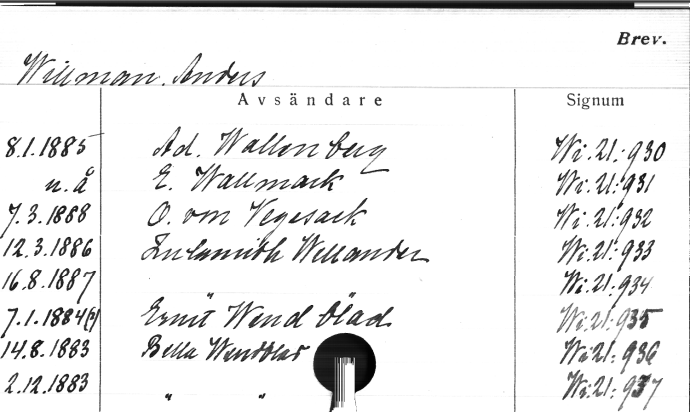 Brev.
Willman, Anders
Avsändare Signum
8.1.1885 Ad. Wallenberg Wi.21:930
u.å E. Wallmark Wi.21:931
7.3.1888 O. von Vegesack Wi.21:932
12.3.1886 Wellander Wi.21:933
16.8.1887 Wi.21:934
7.1.1884(?) Ernst Wendblad Wi:21:935
14.8.1883 Bella Wendblad Wi:21:936
2.12.1883 " " Wi:21:937